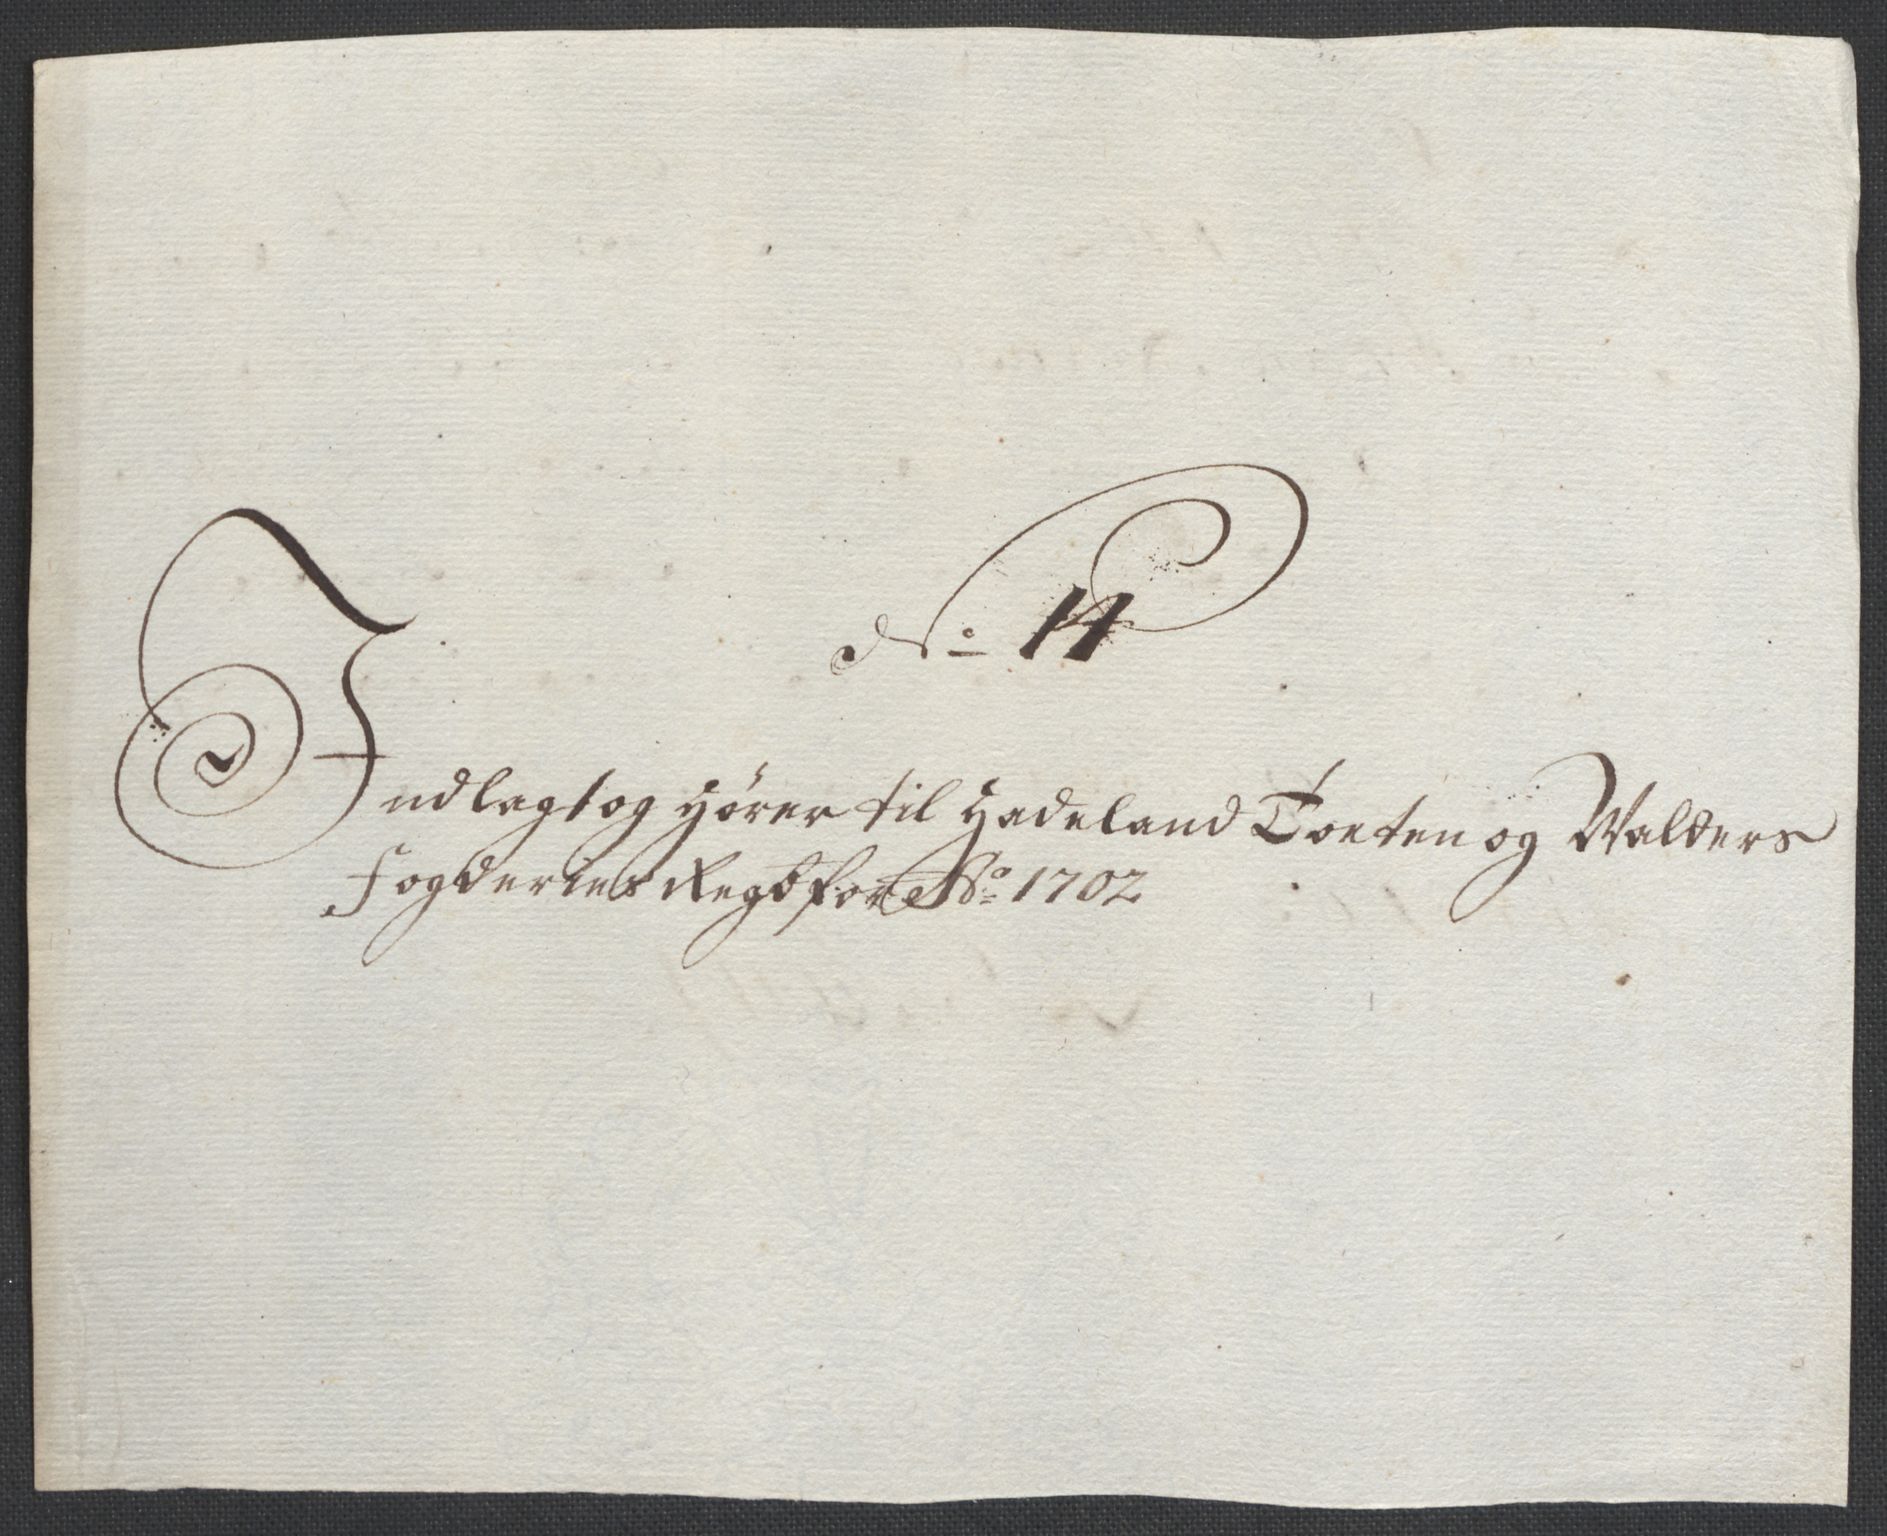 No 14
Indlagt og hører til Hadeland Toeten og Walders
Fogderies Regb for Ao 1702